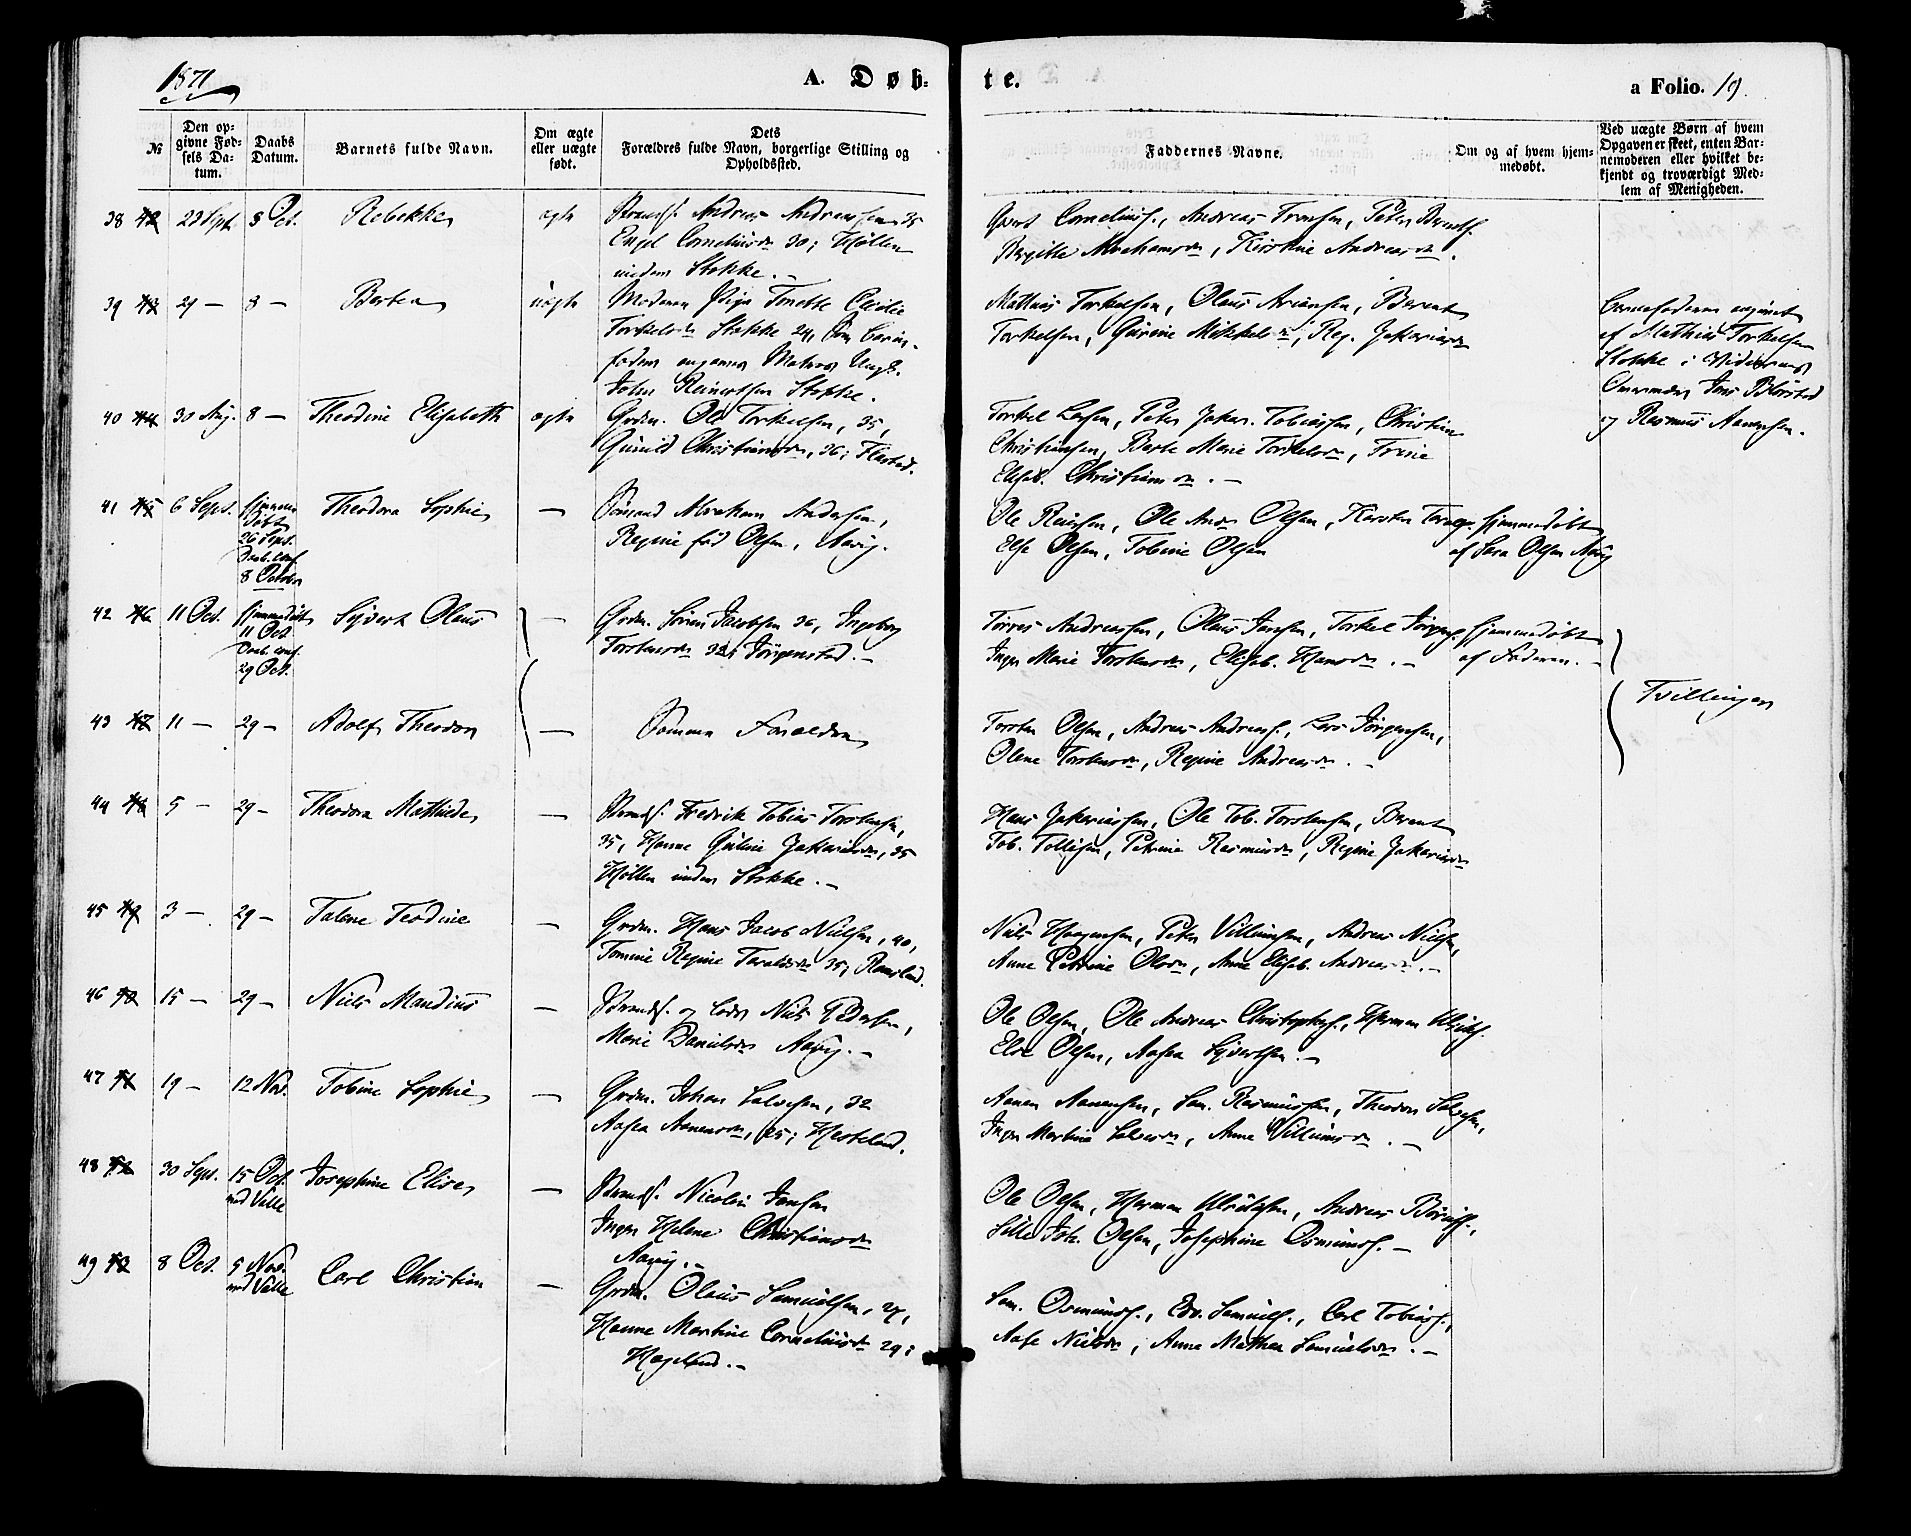 1871
A. Døb-
te.
a Folio. 19.
№
Den op-
givne Fød-
sels Da-
tum.
Daabs
Datum.
Barnets fulde Navn.
Om ægte
eller uægte
født.
Dets
Forældres fulde Navn, borgerlige Stilling og
Opholdssted.
Faddernes Navne.
Om og af hvem hjem-
medøbt.
Ved uægte Børn af hvem
Opgaven er skeet, enten Bar-
nemoderen eller hvilket be-
kjendt og troværdigt Med-
lem af Menigheden.
38 42 22 Sept. 8 Oct. Rebekka ægte Strands. Andreas Andreassen 35
Engel Corneliusdr 30; Høllen
under Stokke. -
Corneliuss., Andreas Tronsen, Peter Berents.
Birgitte Abrahamsdr, Kirstine Andreasdr.
39 43 29 - 8 - Bertea uægte Moderen Pige Tonette Cecilie
Torkelsdr Stokke 24, Som Barne-
fader angives Matros Ungk.
John Reinertsen Stokke.
Mathias Torkelsen, Olaus Ariansen, Berent
Torkelsen, Gurine Mikkelsdr, Reg. Zakariasdr
Barnefaderen angivet
af Mathias Torkelsen
Stokke i Vidners
Jens Blørstad
og Rasmus Aanensen.
40 44 30 Aug. 8 - Theodine Elisabeth ægte Grdm. Ole Torkelsen, 35,
Gunild Christiansdr, 36; Flarstad.
Torkel Larsen, Peter Zakar. Tobiassen, Christian
Christiansen, Berte Marie Torkelsdr, Trine
Elisab. Christiansdr. -
41 45 6 Sept. hjemme-
døbt
26 Sept.
Daab. conf.
8 October
Theodora Sophie - Sømand Abraham Andersen,
Regine fød Olsen, Aavig.
Ole Reiersen, Ole Andr. Olsen, Karsten
Else Olsen, Tobine Olsen
Hjemmedøbt
af Sara Olsen Aavig
42 46 11 Oct. hjemmedøbt
11 Oct
Daab. conf.
29 Oct.
Syvert Olaus - Grdm. Søren Jacobsen 36, Ingeborg
Torstensdr 32; Jørgenstad. -
Torres Andreassen, Olaus Jansen, Torkel Jørgens.
Inger Marie Torstensdr, Elisab. Hansdr. -
Hjemmedøbt
af Faderen. -
Tvillinger
43 47 11 - 29 - Adolf Theodor - Samme Forældre
Torsten Olsen, Andreas Andreass., Lars Jørgensen,
Olene Torstensdr, Regine Andreasdr. -
44 48 5 - 29 - Theodora Mathilde - Strands. Fredrik Tobias Torstensen,
35, Hanne Guline Zakariasdr, 35
Høllen under Stokke. -
Hans Zakariassen, Ole Tob. Torstensen, Berent
Tob. Tellefsen, Petrine Rasmusdr, Regine Zakariasdr
45 49 3 - 29 - Talene Teodine - Grdm. Hans Jacob Nielsen, 40,
Tomine Regine Taraldsdr 35; Ramsland.
Niels Haagensen, Peter Villumsen, Andreas Nielsen,
Anne Petrine Olsdr, Anne Elisab. Andreasdr. -
46 50 15 - 29 - Niels Mandius - Strands. og Lods Niels Pedersen,
Marie Danielsdr Aavig. -
Ole Olsen, Ole Andreas Christophers., Herman Ulriks.
Else Olsen, Aasea Syvertsen. -
47 51 19 - 12 Nov. Tobine Sophie - Grdm. Johan Salvesen, 32
Aasea Aanensdr, 25; Hesteland.
Aanen Aanensen, Sam. Rasmussen, Theodor Salvesen,
Inger Martine Salvesdr, Anne Villumsdr. -
48 52 30 Sept. 15 Oct.
ved Valle
Josephine Elise - Strands. Nicolai Jansen
Inger Helene Christiansdr
Aavig. -
Ole Olsen, Herman Ulriksen, Andreas
Sille Joh. Olsen, Josephine Osmunds. -
49 53 8 Oct. 5 Nov.
ved Valle
Carl Christian - Grdm. Olaus Samuelsen, 27,
Hanne Martine Corneliusdr 29;
Hageland. -
Sam. Osmunds., Edv. Samuels., Carl Tobias.,
Aase Nielsdr, Anne Mathea Samuelsdr. -